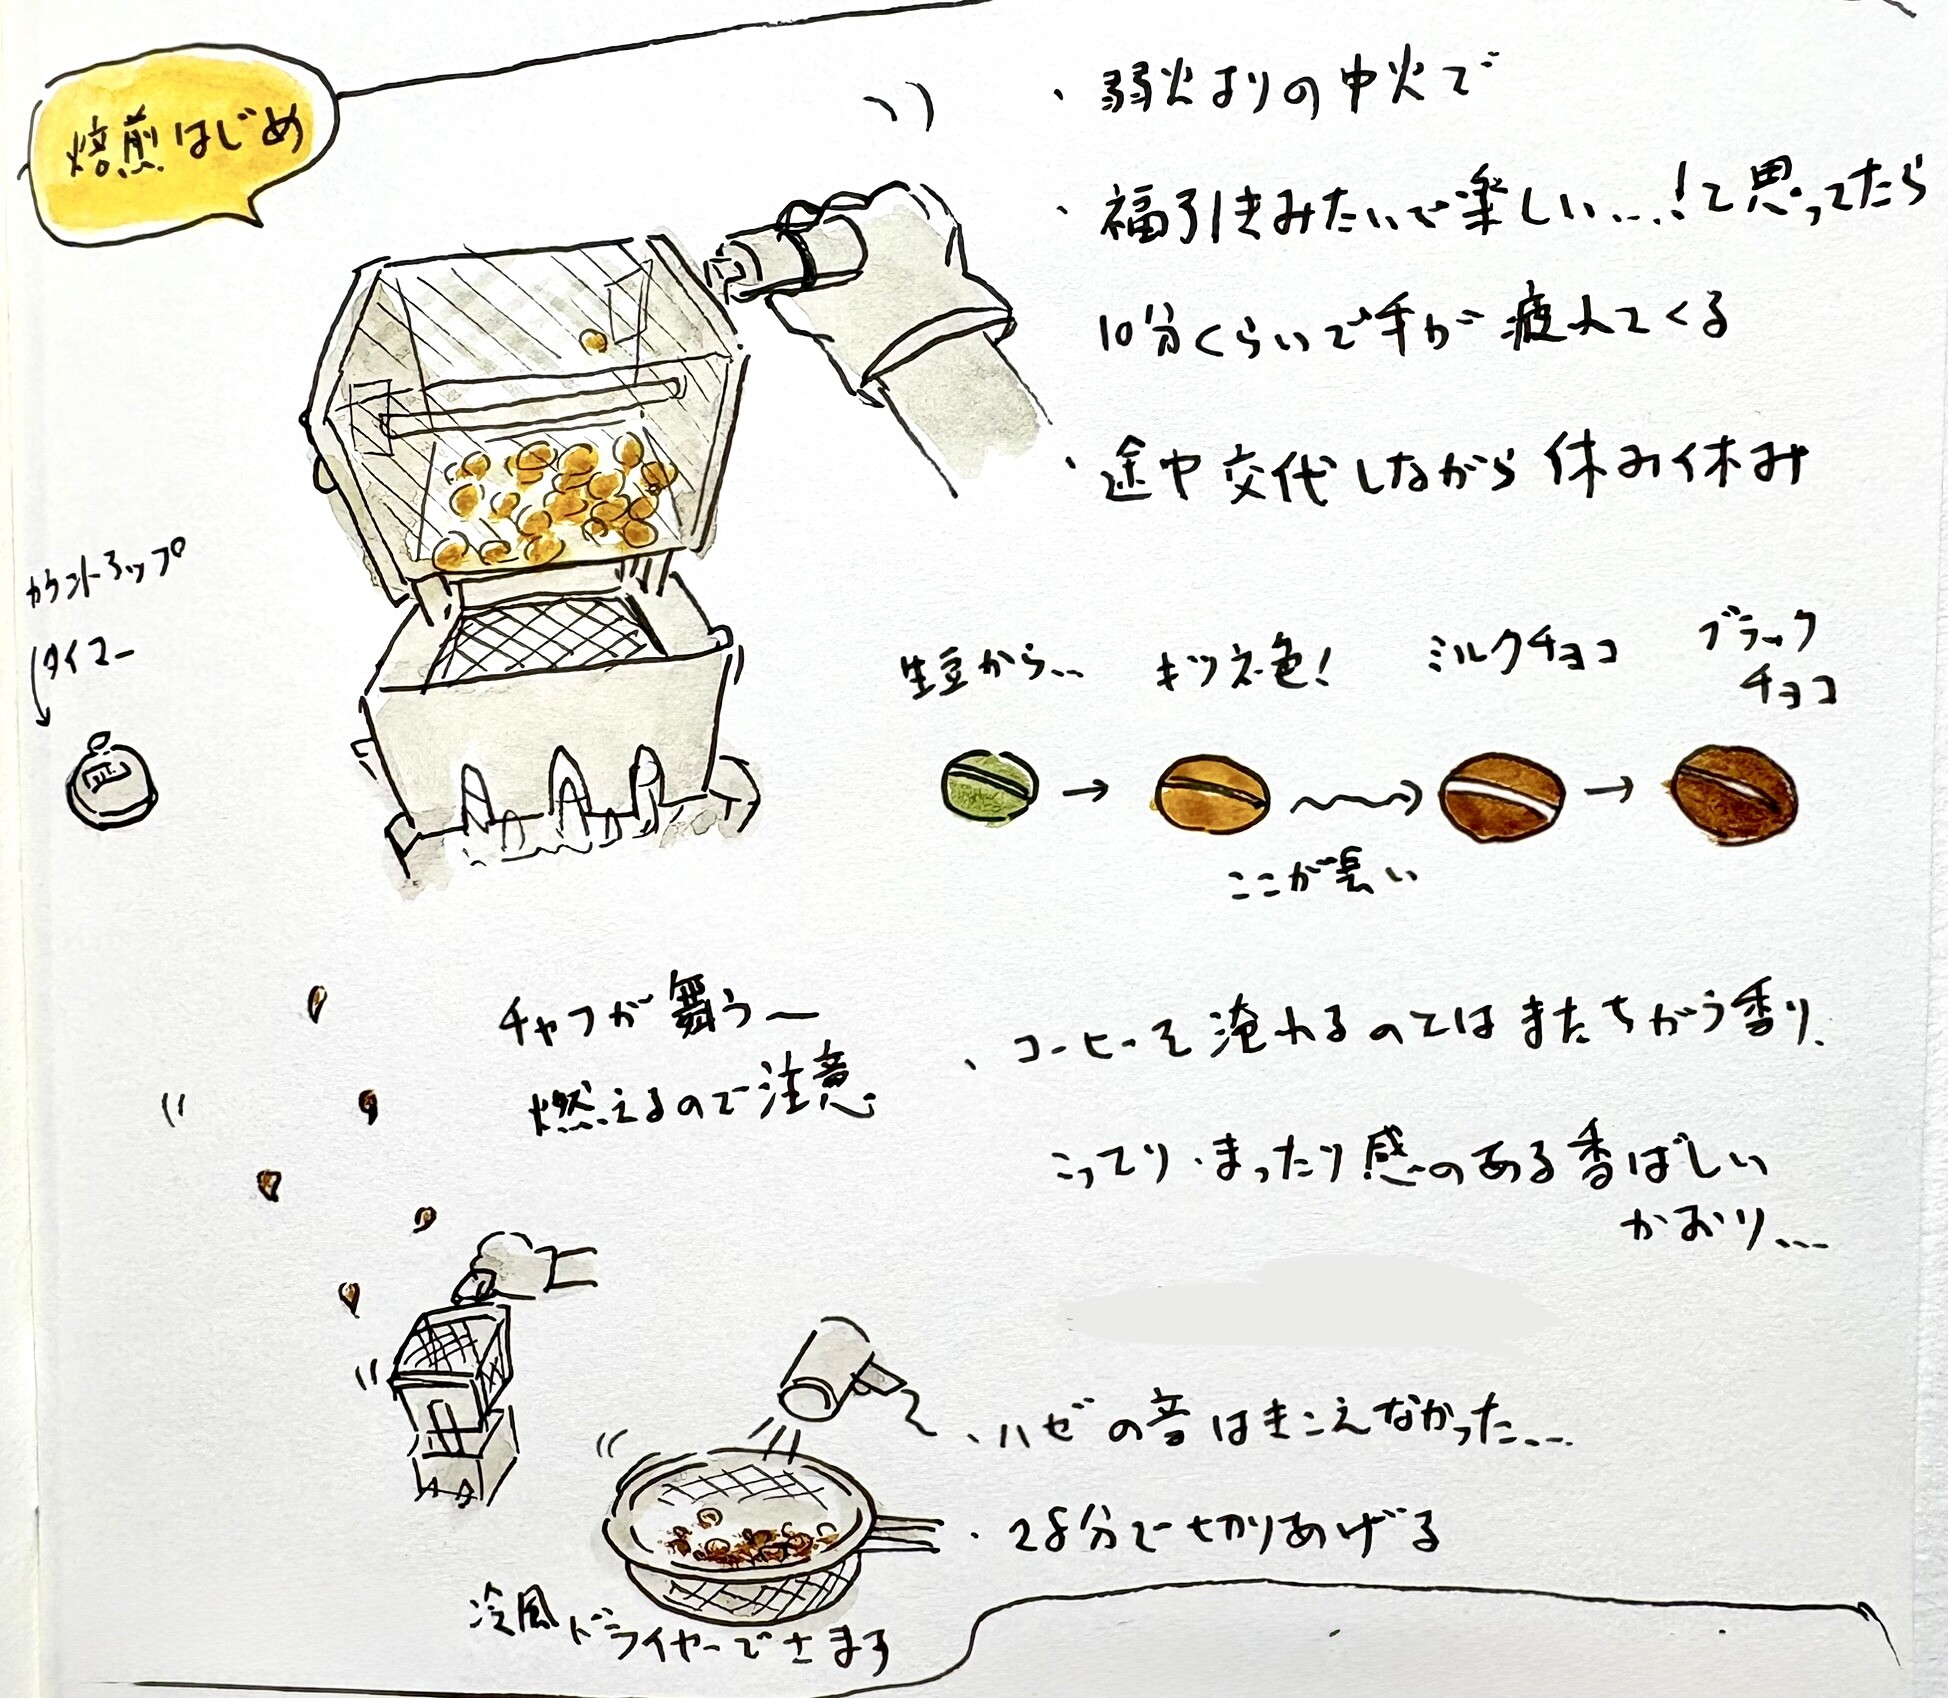 焙煎はじめ
・弱火よりの中火で
・福引きみたいで楽しい…!て思ってたら
10分くらいで手が疲れてくる
・途中交代しながら休み休み
カウントアップ
タイマー
生豆から…
キツネ色!
ミルクチョコ
ブラック
チョコ
ここが長い
チャフが舞う〜
燃えるので注意
・コーヒーを淹れるのとはまたちがう香り.
こってり・まったり感のある香ばしい
かおり…
・ハゼの音はきこえなかった…
・28分で切りあげる
冷風ドライヤーでさます